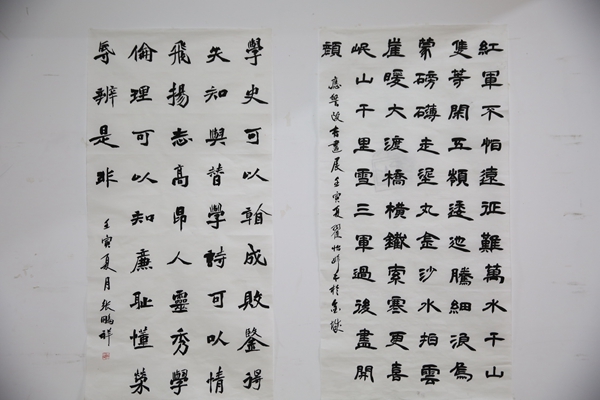 紅軍不怕遠征難萬水千山
隻等閑五嶺逶迤騰細浪烏
蒙磅礴走埿丸金沙水拍雲
崖暖大渡橋橫鐵索寒更喜
岷山千里雪三軍過後盡開
顏
書畫展壬寅夏翟怡
學史可以看成敗鑒得
失知興替學詩可以情
飛揚志高昂人靈秀學
倫理可以知廉恥懂榮
辱辨是非
壬寅夏月張鵬祥